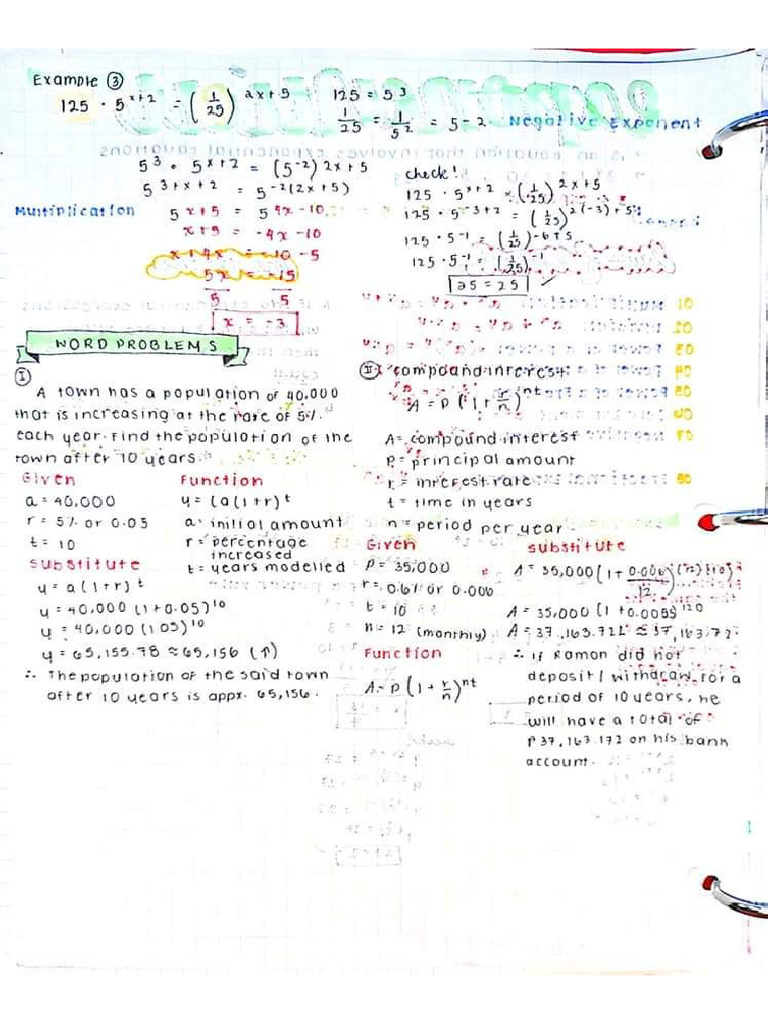 Example ③
125 · 5^{x+2} = (1/25)^{2x+5}
125 = 5^3
1/25 = 1/5^2 = 5-2 Negative Exponent
5^3 · 5^{x+2} = (5^{-2})^{2x+5}
5^{3+x+2} = 5^{-2(2x+5)}
Multiplication 5^{x+5} = 5^{4x-10}
x+5 = -4x -10
x+4x = -10 -5
5x = -15
5 5
x = -3
check!
125 · 5^{x+2} = (1/25)^{2x+5}
125 · 5^{-3+2} = (1/25)^{2(-3)+5}
125 · 5^{-1} = (1/25)^{-6+5}
125 · 5^{-1} = (1/25)^{-1}
25 = 25 ✓
WORD PROBLEMS
①
A town has a population of 40,000
that is increasing at the rate of 5%
each year. Find the population of the
town after 10 years.
Given
a = 40,000
r = 5% or 0.05
t = 10
Function
y = (a(1+r)^t
a = initial amount
r = percentage
increased
t = years modelled
Substitute
y = a(1+r)^t
y = 40,000 (1+0.05)^{10}
y = 40,000 (1.05)^{10}
y = 65,155.78 ≈ 65,156 (↑)
∴ The population of the said town
after 10 years is appx. 65,156.
② compound interest
A = P (1 + r/n)^{nt}
A = compound interest
P = principal amount
r = interest rate
t = time in years
n = period per year
Given
P = 35,000
r = 0.6% or 0.006
t = 10
n = 12 (monthly)
Function
A = P (1 + r/n)^{nt}
Substitute
A = 35,000 (1 + 0.006/12)^{(12)(10)}
A = 35,000 (1 + 0.0005)^{120}
A = 37,163.721 ≈ 37,163.72
∴ If Ramon did not
deposit/withdraw for a
period of 10 years, he
will have a total of
₱37,163.172 on his bank
account.